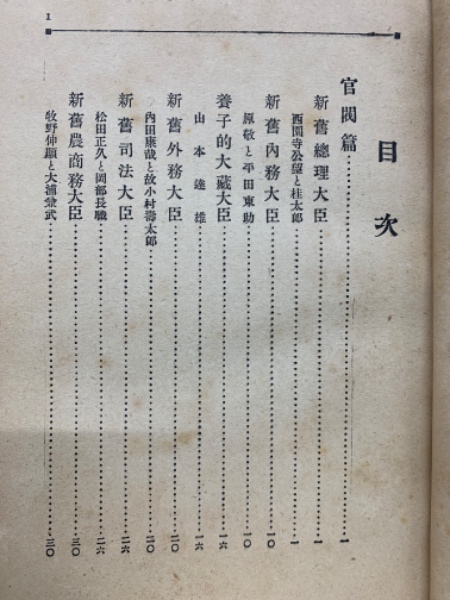 1
目次
官閥篇……一
新舊總理大臣……一
西園寺公望と桂太郎……一
新舊內務大臣……一〇
原敬と平田東助……一〇
養子的大藏大臣……一六
山本達雄……一六
新舊外務大臣……二〇
內田康哉と故小村壽太郎……二〇
新舊司法大臣……二六
松田正久と岡部長職……二六
新舊農商務大臣……三〇
牧野伸顯と大浦兼武……三〇